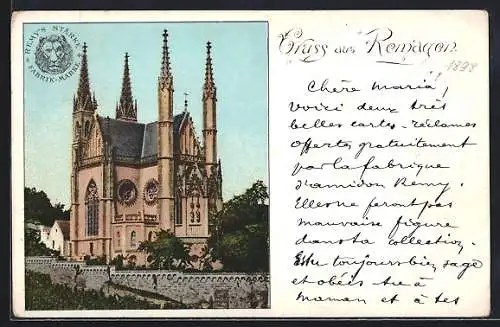 REMY'S STÄRKE
FABRIK-MARKE
Gruss aus Remagen.
1898
Chère Maria!
voici deux très
belles cartes-réclames
offertes gratuitement
par la fabrique
d'amidon Remy.
Elles ne feront pas
mauvaise figure
dans ta collection.
Es-tu toujours bien sage
et obéis-tu à
maman et à tes